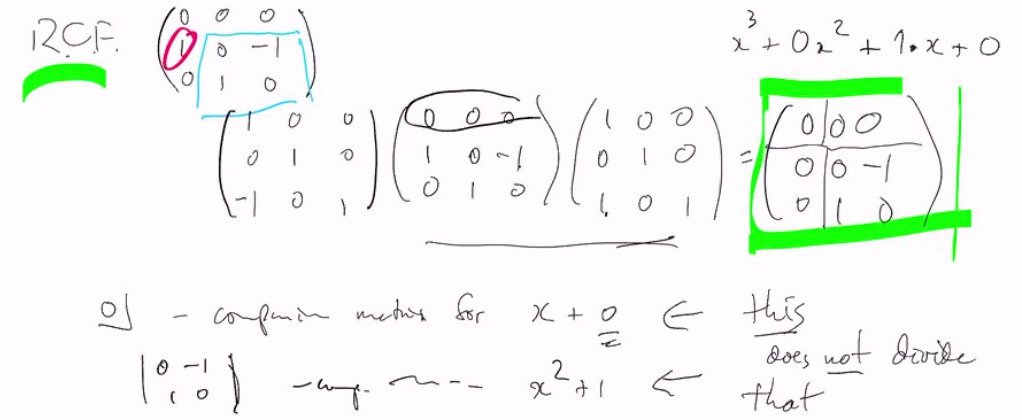 R.C.F. ( 0 0 0 ; 1 0 -1 ; 0 1 0 ) x³ + 0x² + 1·x + 0
( 1 0 0 ; 0 1 0 ; -1 0 1 ) ( 0 0 0 ; 1 0 -1 ; 0 1 0 ) ( 1 0 0 ; 0 1 0 ; 1 0 1 ) = ( 0 0 0 ; 0 0 -1 ; 0 1 0 )
0] - companion matrix for x + 0 ← this
does not divide
( 0 -1 ; 1 0 ) - comp. x² + 1 ← that